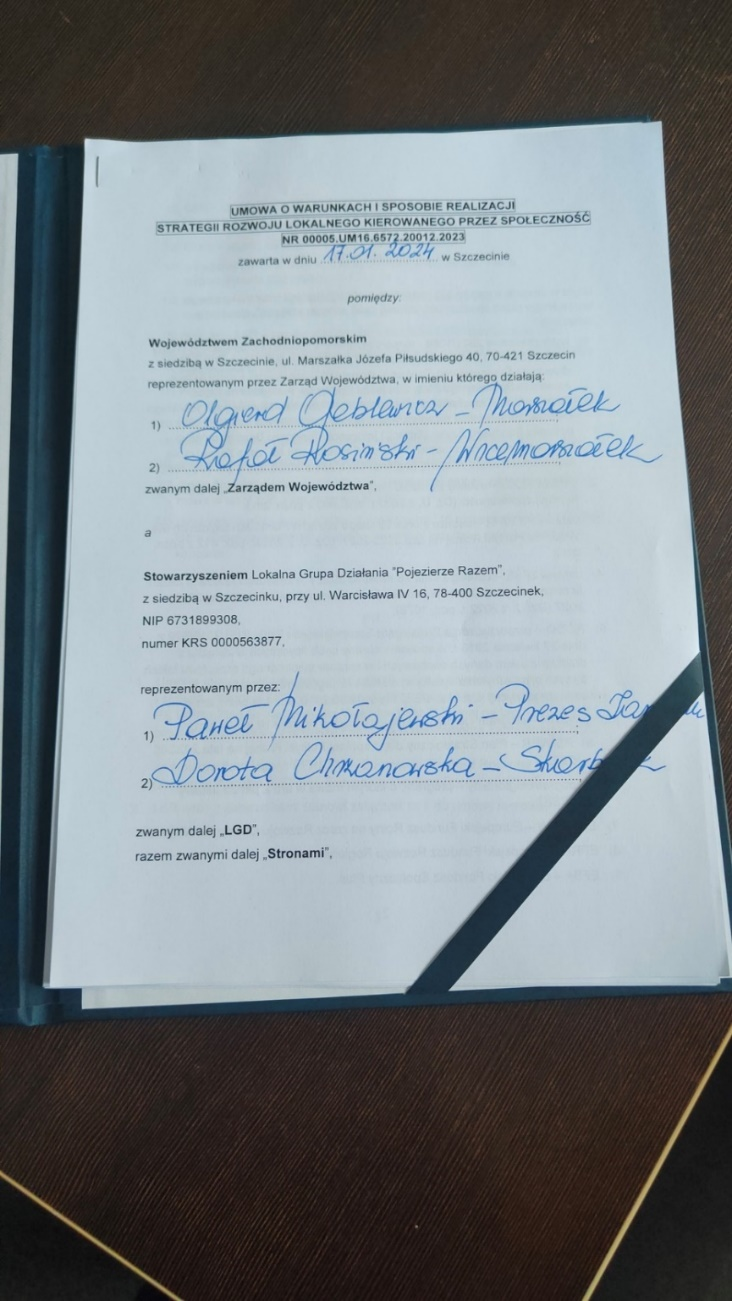 UMOWA O WARUNKACH I SPOSOBIE REALIZACJI
STRATEGII ROZWOJU LOKALNEGO KIEROWANEGO PRZEZ SPOŁECZNOŚĆ
NR 00005.UM16.6572.20012.2023
zawarta w dniu 17.01.2024 w Szczecinie
pomiędzy:
Województwem Zachodniopomorskim
z siedzibą w Szczecinie, ul. Marszałka Józefa Piłsudskiego 40, 70-421 Szczecin
reprezentowanym przez Zarząd Województwa, w imieniu którego działają:
1) Olgierd Geblewicz - Marszałek
2) Rafał Rosiński - Wicemarszałek
zwanym dalej „Zarządem Województwa”,
a
Stowarzyszeniem Lokalna Grupa Działania "Pojezierze Razem",
z siedzibą w Szczecinku, przy ul. Warcisława IV 16, 78-400 Szczecinek,
NIP 6731899308,
numer KRS 0000563877,
reprezentowanym przez:
1) Paweł Mikołajewski - Prezes
2) Dorota Chrzanowska -
zwanym dalej „LGD”,
razem zwanymi dalej „Stronami”,